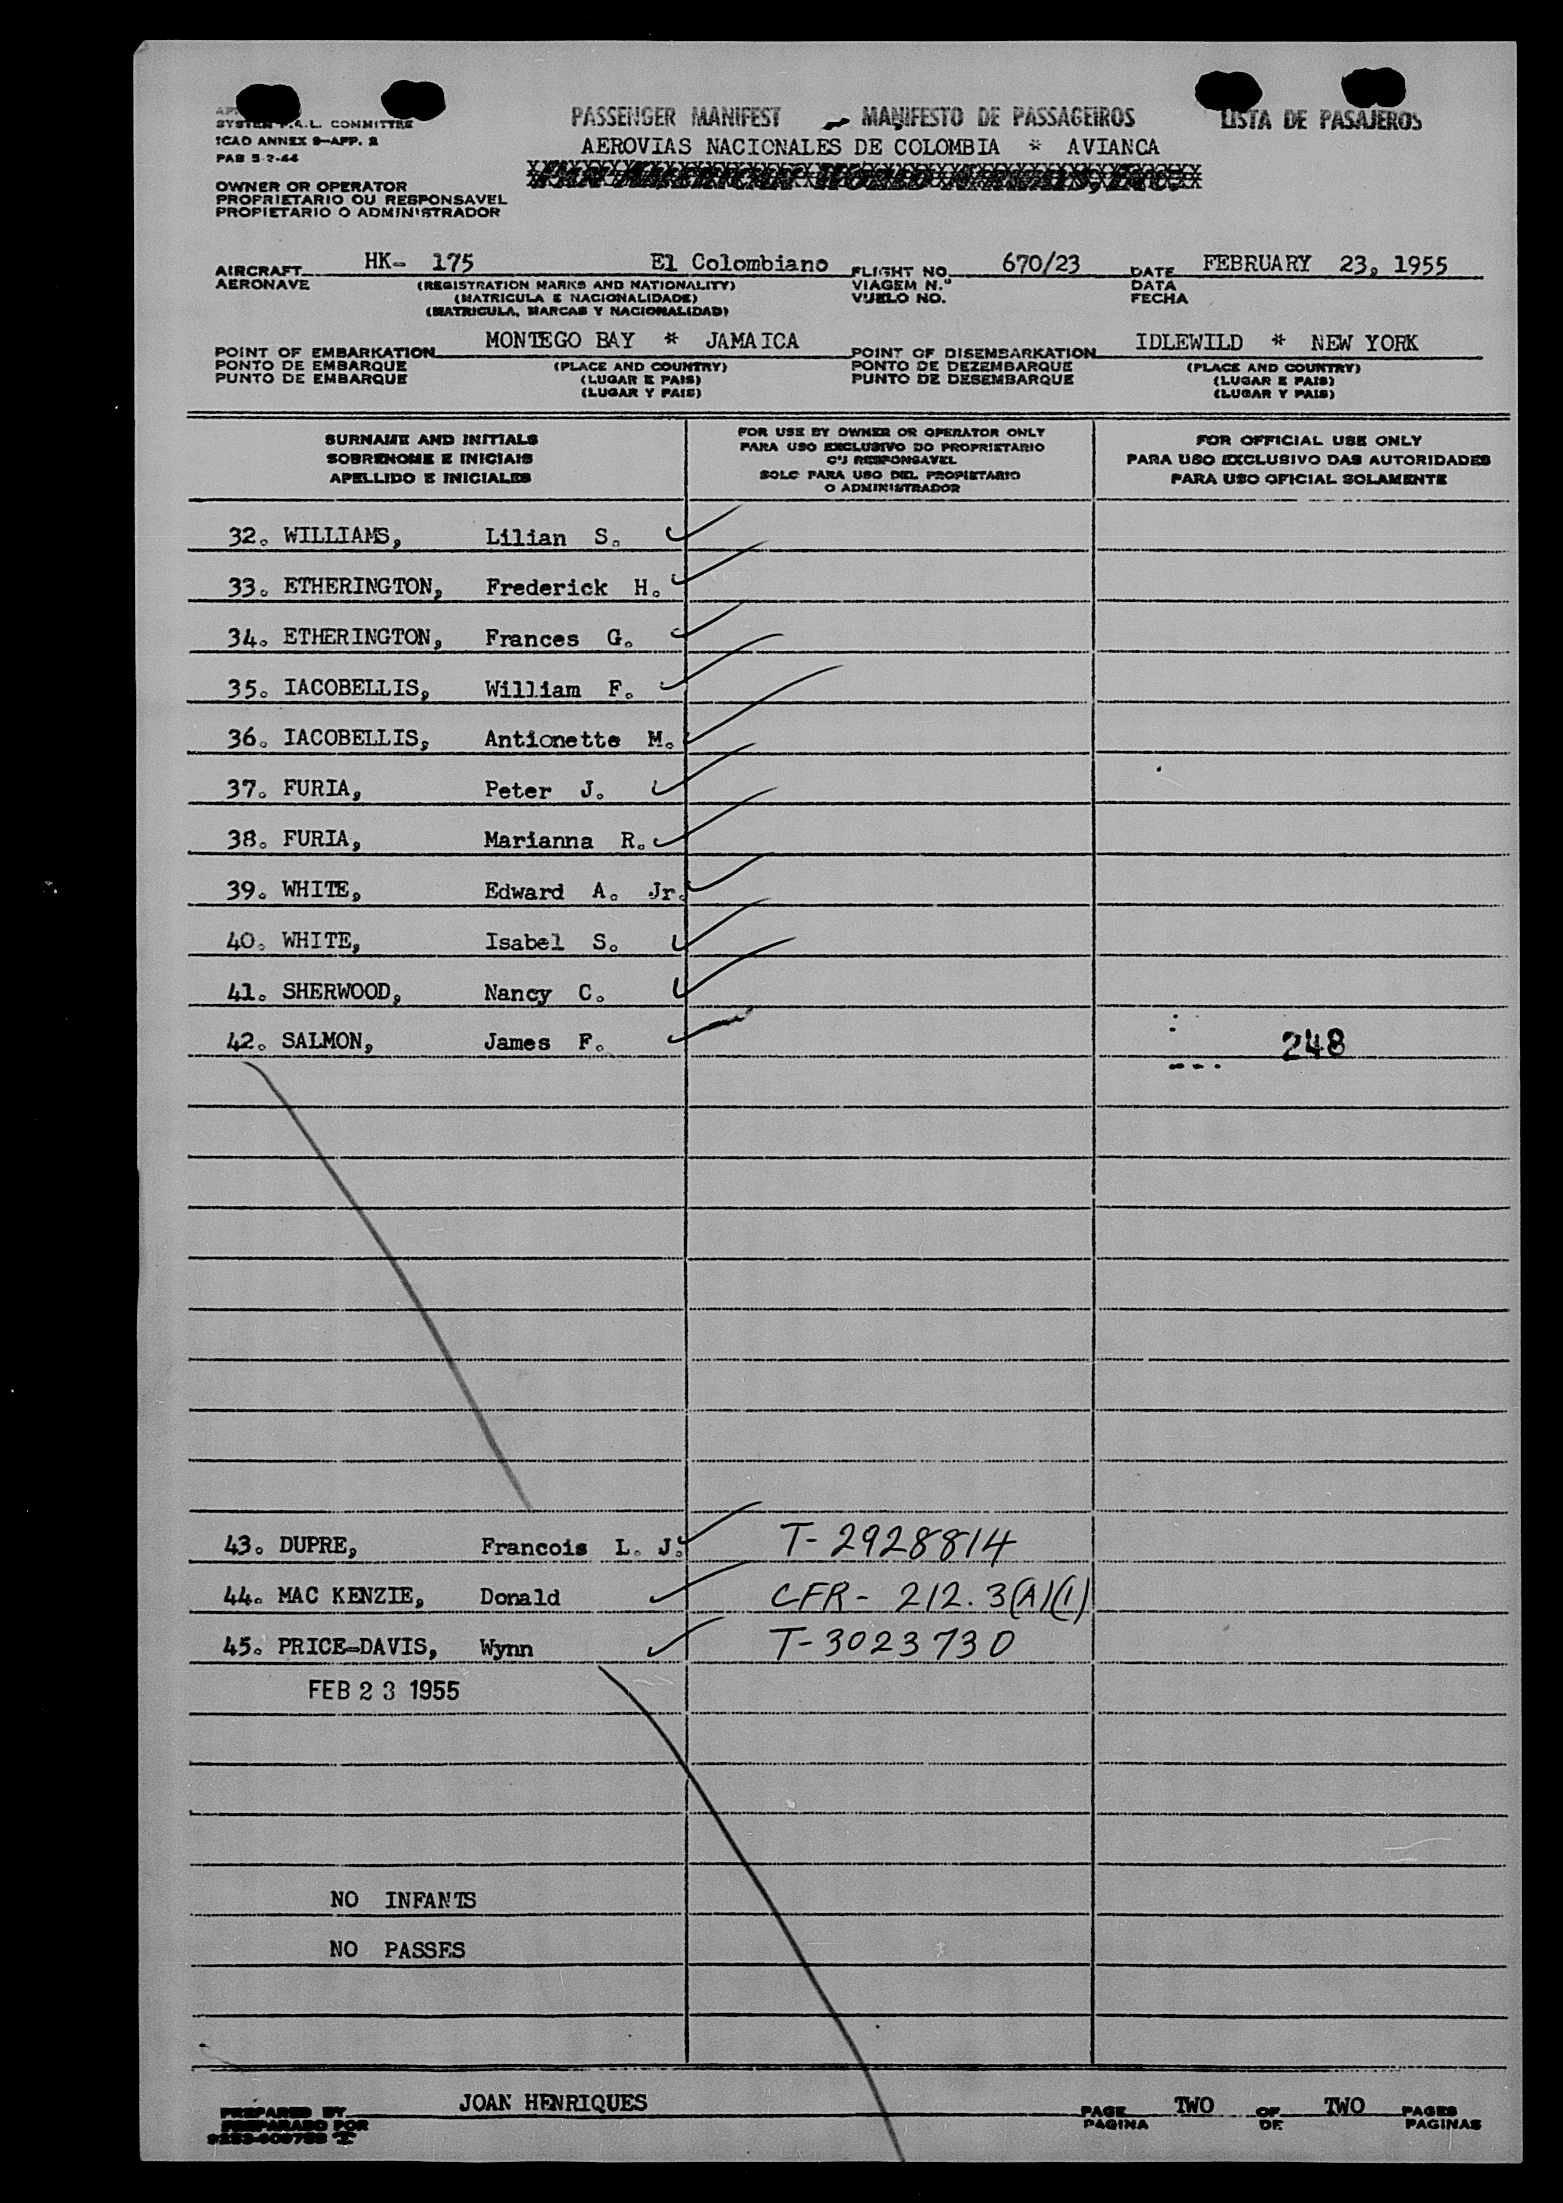 PASSENGER MANIFEST MANIFESTO DE PASSAGEIROS LISTA DE PASAJEROS
SYSTEM F.A.L. COMMITTEE
ICAO ANNEX 9—APP. 2
PAB 5-2-44
AEROVIAS NACIONALES DE COLOMBIA * AVIANCA
OWNER OR OPERATOR
PROPRIETARIO OU RESPONSAVEL
PROPIETARIO O ADMINISTRADOR
AIRCRAFT HK- 175 El Colombiano FLIGHT NO. 670/23 DATE FEBRUARY 23, 1955
AERONAVE (REGISTRATION MARKS AND NATIONALITY) VIAGEM N.º DATA
(MATRICULA E NACIONALIDADE) VUELO NO. FECHA
(MATRICULA, MARCAS Y NACIONALIDAD)
POINT OF EMBARKATION MONTEGO BAY * JAMAICA POINT OF DISEMBARKATION IDLEWILD * NEW YORK
PONTO DE EMBARQUE (PLACE AND COUNTRY) PONTO DE DEZEMBARQUE (PLACE AND COUNTRY)
PUNTO DE EMBARQUE (LUGAR E PAIS) PUNTO DE DESEMBARQUE (LUGAR E PAIS)
(LUGAR Y PAIS) (LUGAR Y PAIS)
SURNAME AND INITIALS
SOBRENOME E INICIAIS
APELLIDO E INICIALES
FOR USE BY OWNER OR OPERATOR ONLY
PARA USO EXCLUSIVO DO PROPRIETARIO
OU RESPONSAVEL
SOLO PARA USO DEL PROPIETARIO
O ADMINISTRADOR
FOR OFFICIAL USE ONLY
PARA USO EXCLUSIVO DAS AUTORIDADES
PARA USO OFICIAL SOLAMENTE
32. WILLIAMS, Lilian S.
33. ETHERINGTON, Frederick H.
34. ETHERINGTON, Frances G.
35. IACOBELLIS, William F.
36. IACOBELLIS, Antionette M.
37. FURIA, Peter J.
38. FURIA, Marianna R.
39. WHITE, Edward A. Jr.
40. WHITE, Isabel S.
41. SHERWOOD, Nancy C.
42. SALMON, James F. 248
43. DUPRE, Francois L. J. T-2928814
44. MAC KENZIE, Donald CFR- 212.3(A)(1)
45. PRICE-DAVIS, Wynn T-3023730
FEB 23 1955
NO INFANTS
NO PASSES
PREPARED BY JOAN HENRIQUES PAGE TWO OF TWO PAGES
PREPARADO POR PAGINA DE PAGINAS